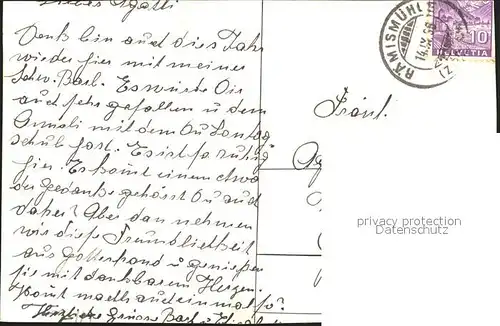 Liebes Agathli
Denk bin auch dies Jahr
wieder hier mit meiner
Schw. Barb. Es würde Dir
auch sehr gefallen u dem
Anneli mit dem Du Sonntag
schub hast. Es ist so ruhig
hier. Es kommt einem etwa
der Gedanke gehörst Du auch
daher? Aber dan nehmen
wir diese Freundlichkeit
aus Gotteshand u. genießen
sie mit dankbarem Herzen.
Kommt macht auch einmal so?
Herzliche Grüsse Barb. u.
Fräul.
RÄMISMÜHLE
14.IX.36
10
HELVETIA
privacy protection
Datenschutz